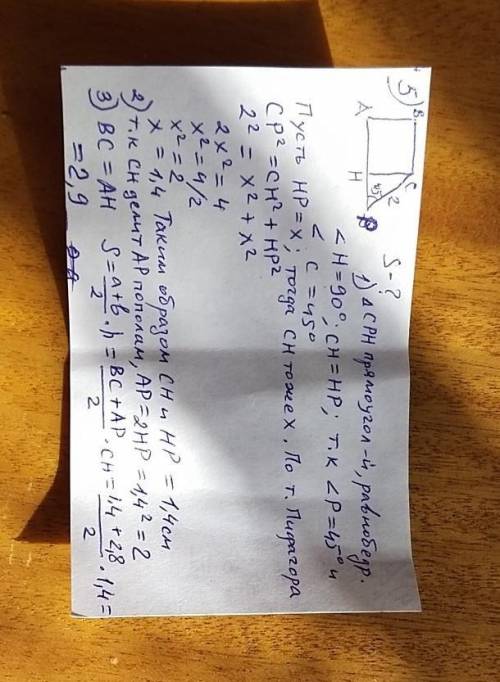 5) B C 2 45 A H P S-?
1) △CPH прямоугол-й, равнобедр.
<H=90°; CH=HP; т.к <P=45° и
< C =45°
Пусть HP=x; тогда CH тоже x. По т. Пифагора
CP²=CH²+HP²
2² = x²+x²
2x²=4
x²=4/2
x²=2
x = 1,4 Таким образом CH и HP = 1,4см
2) т.к CH делит AP пополам, AP=2HP=1,4²=2
3) BC=AH S=a+b/2 · h = BC+AP/2 · CH = 1,4+2,8/2 · 1,4=
=2,9